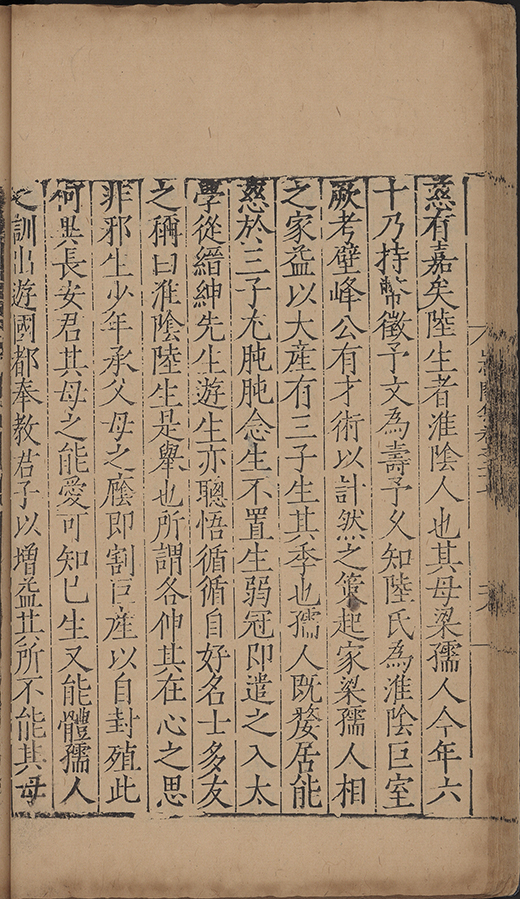 慈有嘉矣陸生者淮陰人也其母梁孺人今年六
十乃持幣徵予文為壽予乆知陸氏為淮陰巨室
厥考壁峰公有才術以計然之策起家梁孺人相
之家益以大產有三子生其季也孺人既嫠居能
慈於三子尤肫肫念生不置生弱冠即遣之入太
學從縉紳先生遊生亦聰悟循循自好名士多友
之稱曰淮陰陸生是舉也所謂各伸其在心之思
非邪生少年承父母之廕即割巨產以自封殖此
何異長安君其母之能愛可知已生又能體孺人
之訓出遊國都奉教君子以增益其所不能其母